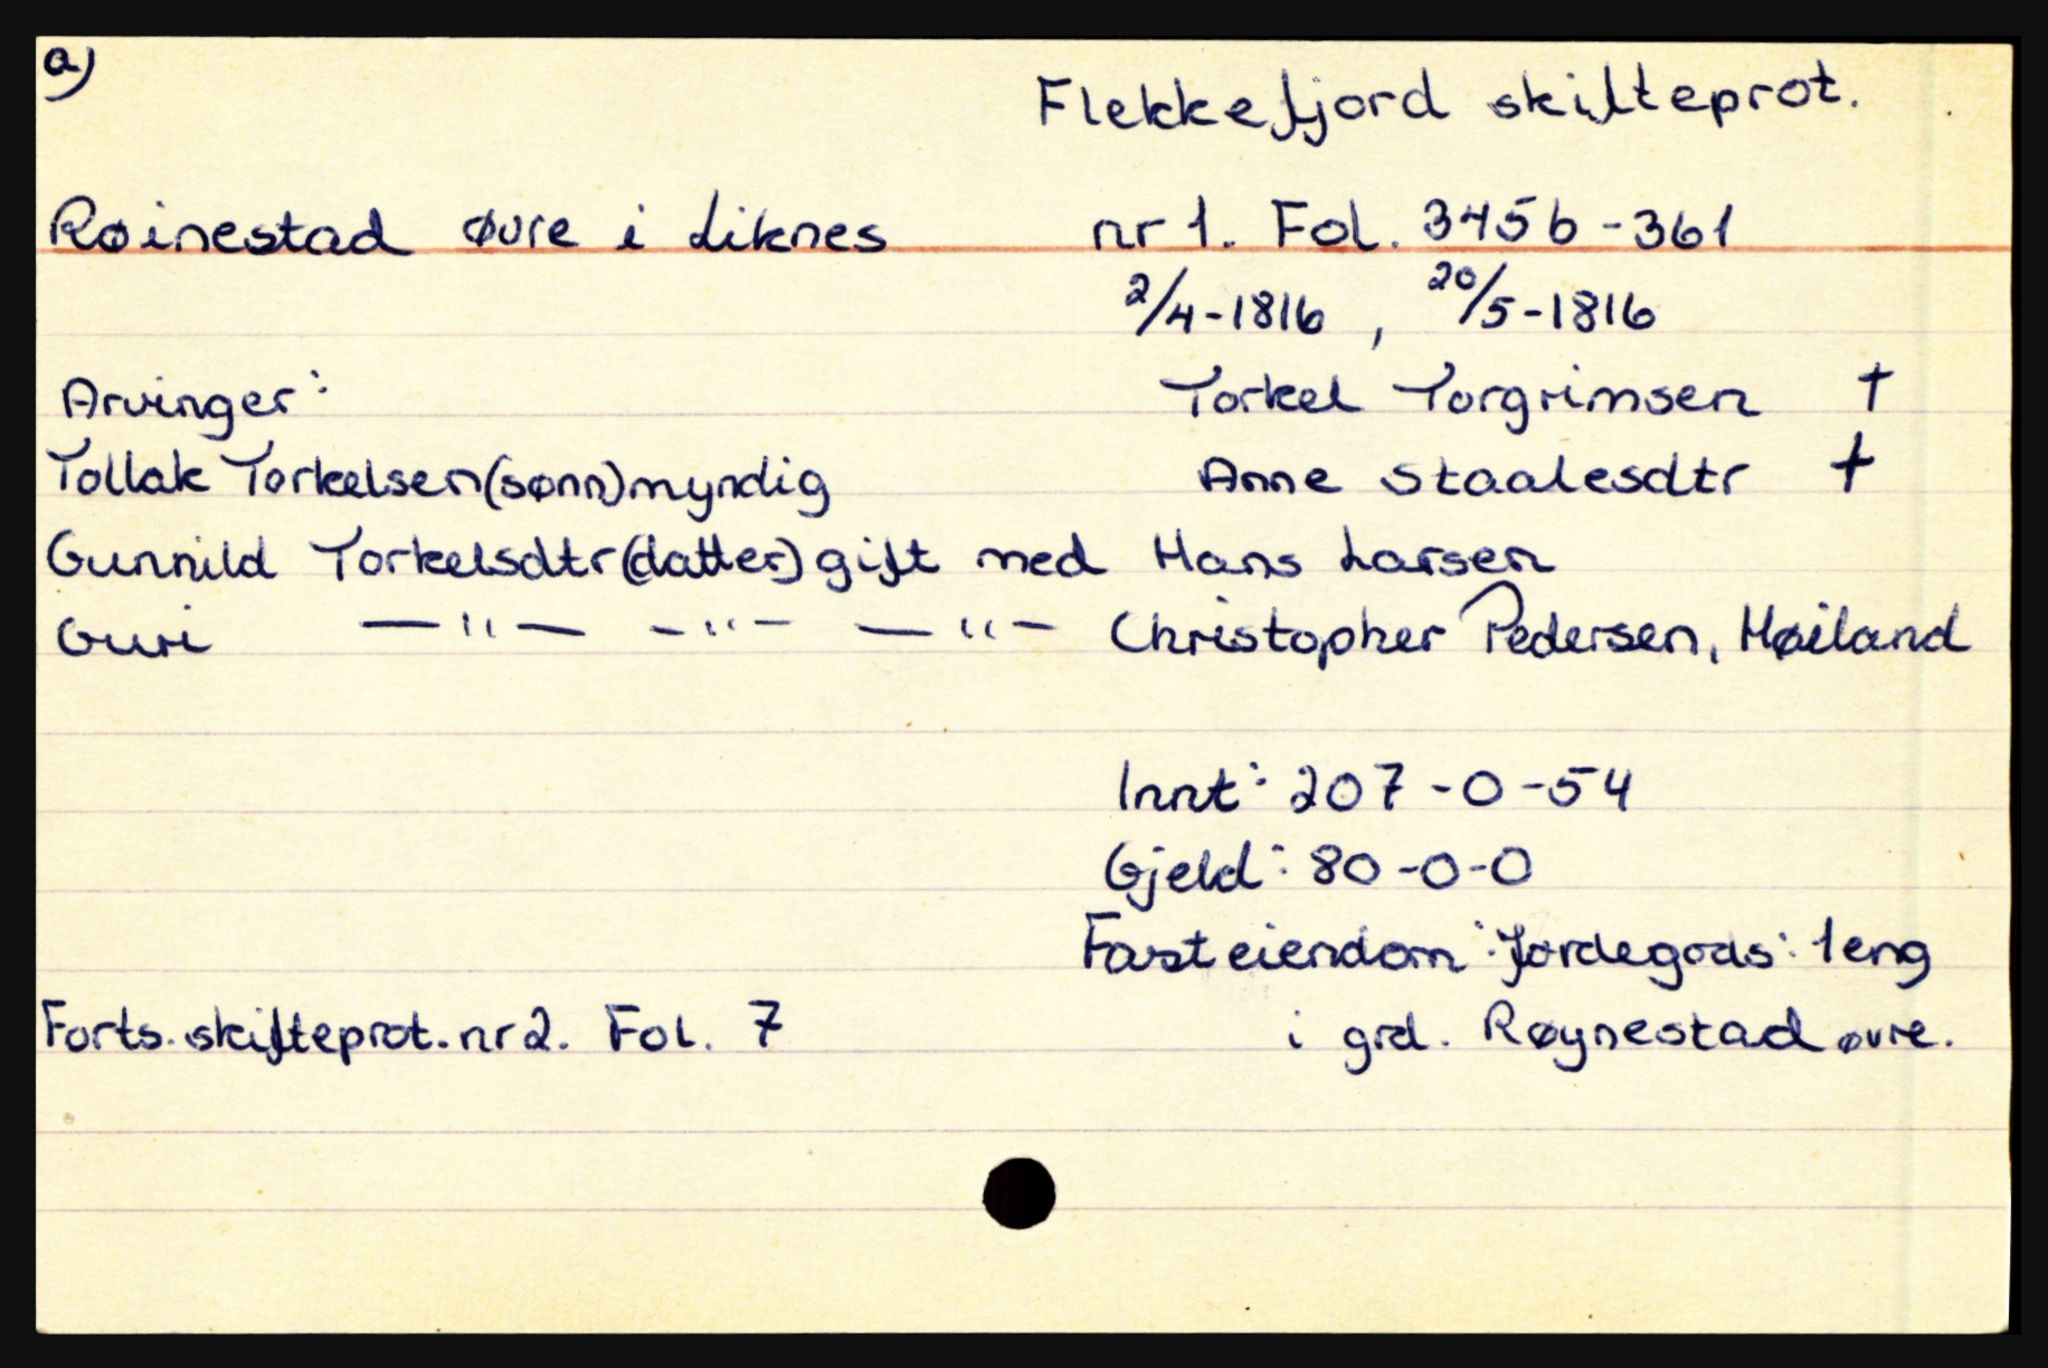 a)
Flekkefjord skifteprot.
Røinestad øvre i Liknes nr 1. Fol. 345b-361
2/4-1816 , 20/5-1816
Arvinger: Torkel Torgrimsen †
Tollak Torkelsen (sønn) myndig Anne Staalesdtr †
Gunnild Torkelsdtr (datter) gift med Hans Larsen
Guri —"— -"- —"- Christopher Pedersen, Høiland
Innt: 207-0-54
Gjeld: 80-0-0
Fast eiendom: Jordegods: 1 eng
Forts. skifteprot. nr 2. Fol. 7 i grd. Røynestad øvre.